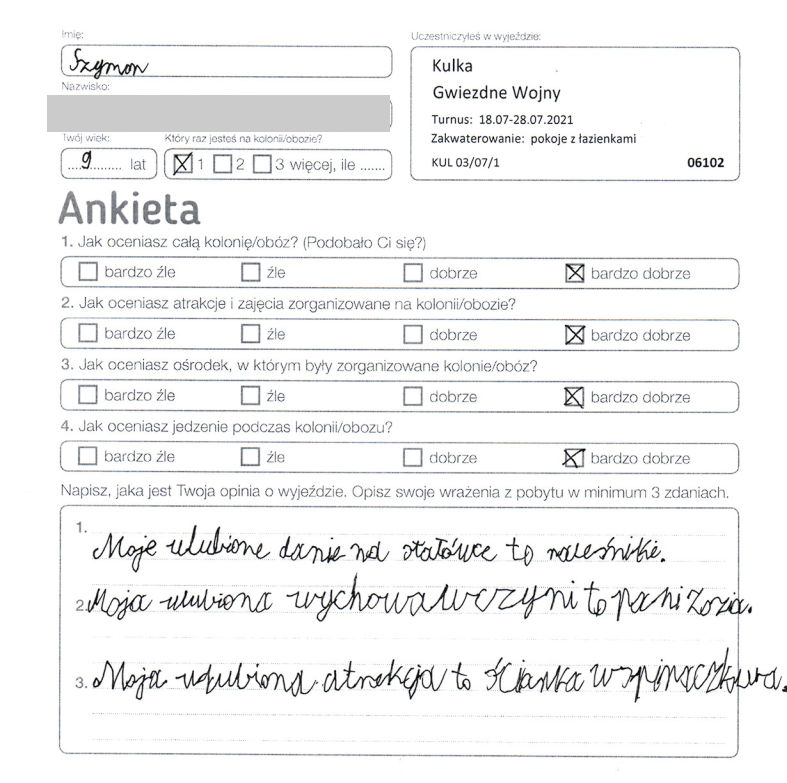 Imię:
Szymon
Nazwisko:
Twój wiek:
9 lat
Który raz jesteś na kolonii/obozie?
1 2 3 więcej, ile .......
Uczestniczyłeś w wyjeździe:
Kulka
Gwiezdne Wojny
Turnus: 18.07-28.07.2021
Zakwaterowanie: pokoje z łazienkami
KUL 03/07/1 06102
Ankieta
1. Jak oceniasz całą kolonię/obóz? (Podobało Ci się?)
bardzo źle źle dobrze bardzo dobrze
2. Jak oceniasz atrakcje i zajęcia zorganizowane na kolonii/obozie?
bardzo źle źle dobrze bardzo dobrze
3. Jak oceniasz ośrodek, w którym były zorganizowane kolonie/obóz?
bardzo źle źle dobrze bardzo dobrze
4. Jak oceniasz jedzenie podczas kolonii/obozu?
bardzo źle źle dobrze bardzo dobrze
Napisz, jaka jest Twoja opinia o wyjeździe. Opisz swoje wrażenia z pobytu w minimum 3 zdaniach.
1. Moje ulubione danie na stałówce to naleśniki.
2. Moja ulubiona wychowawczyni to pani Zozia.
3. Moja ulubiona atrakcja to ścianka wspinaczkowa.